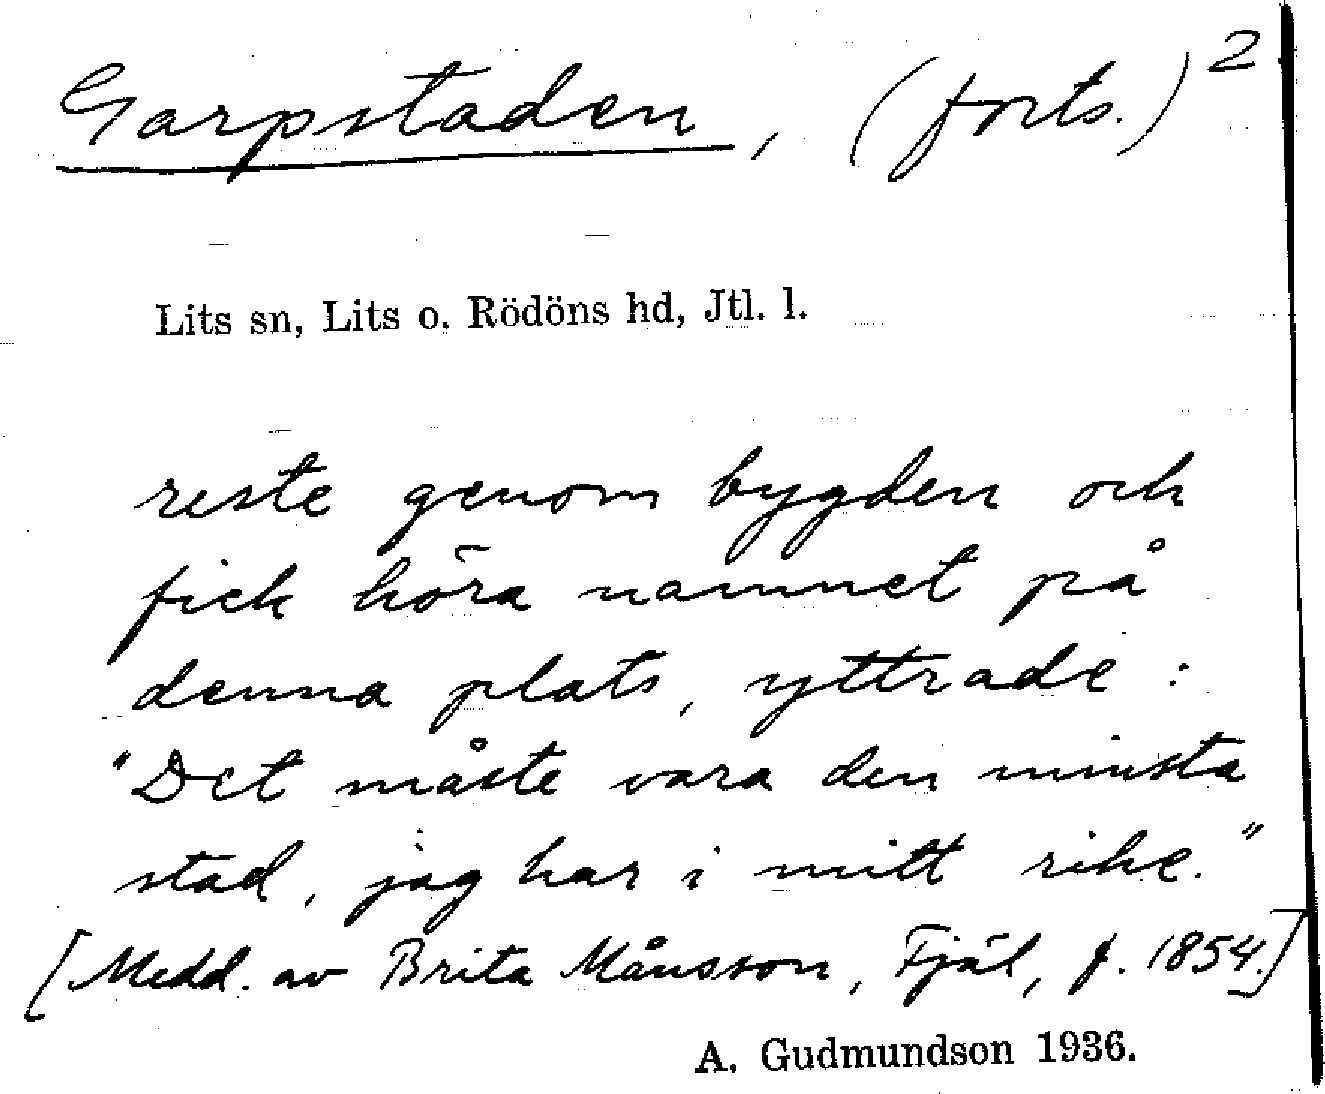 Garpstaden, (forts.) 2
Lits sn, Lits o. Rödöns hd, Jtl. l.
reste genom bygden och
fick höra namnet på
denna plats, yttrade:
"Det måste vara den minsta
stad, jag har i mitt rike."
[Medd. av Brita Månsson, Fjäl, f. 1854.]
A. Gudmundson 1936.